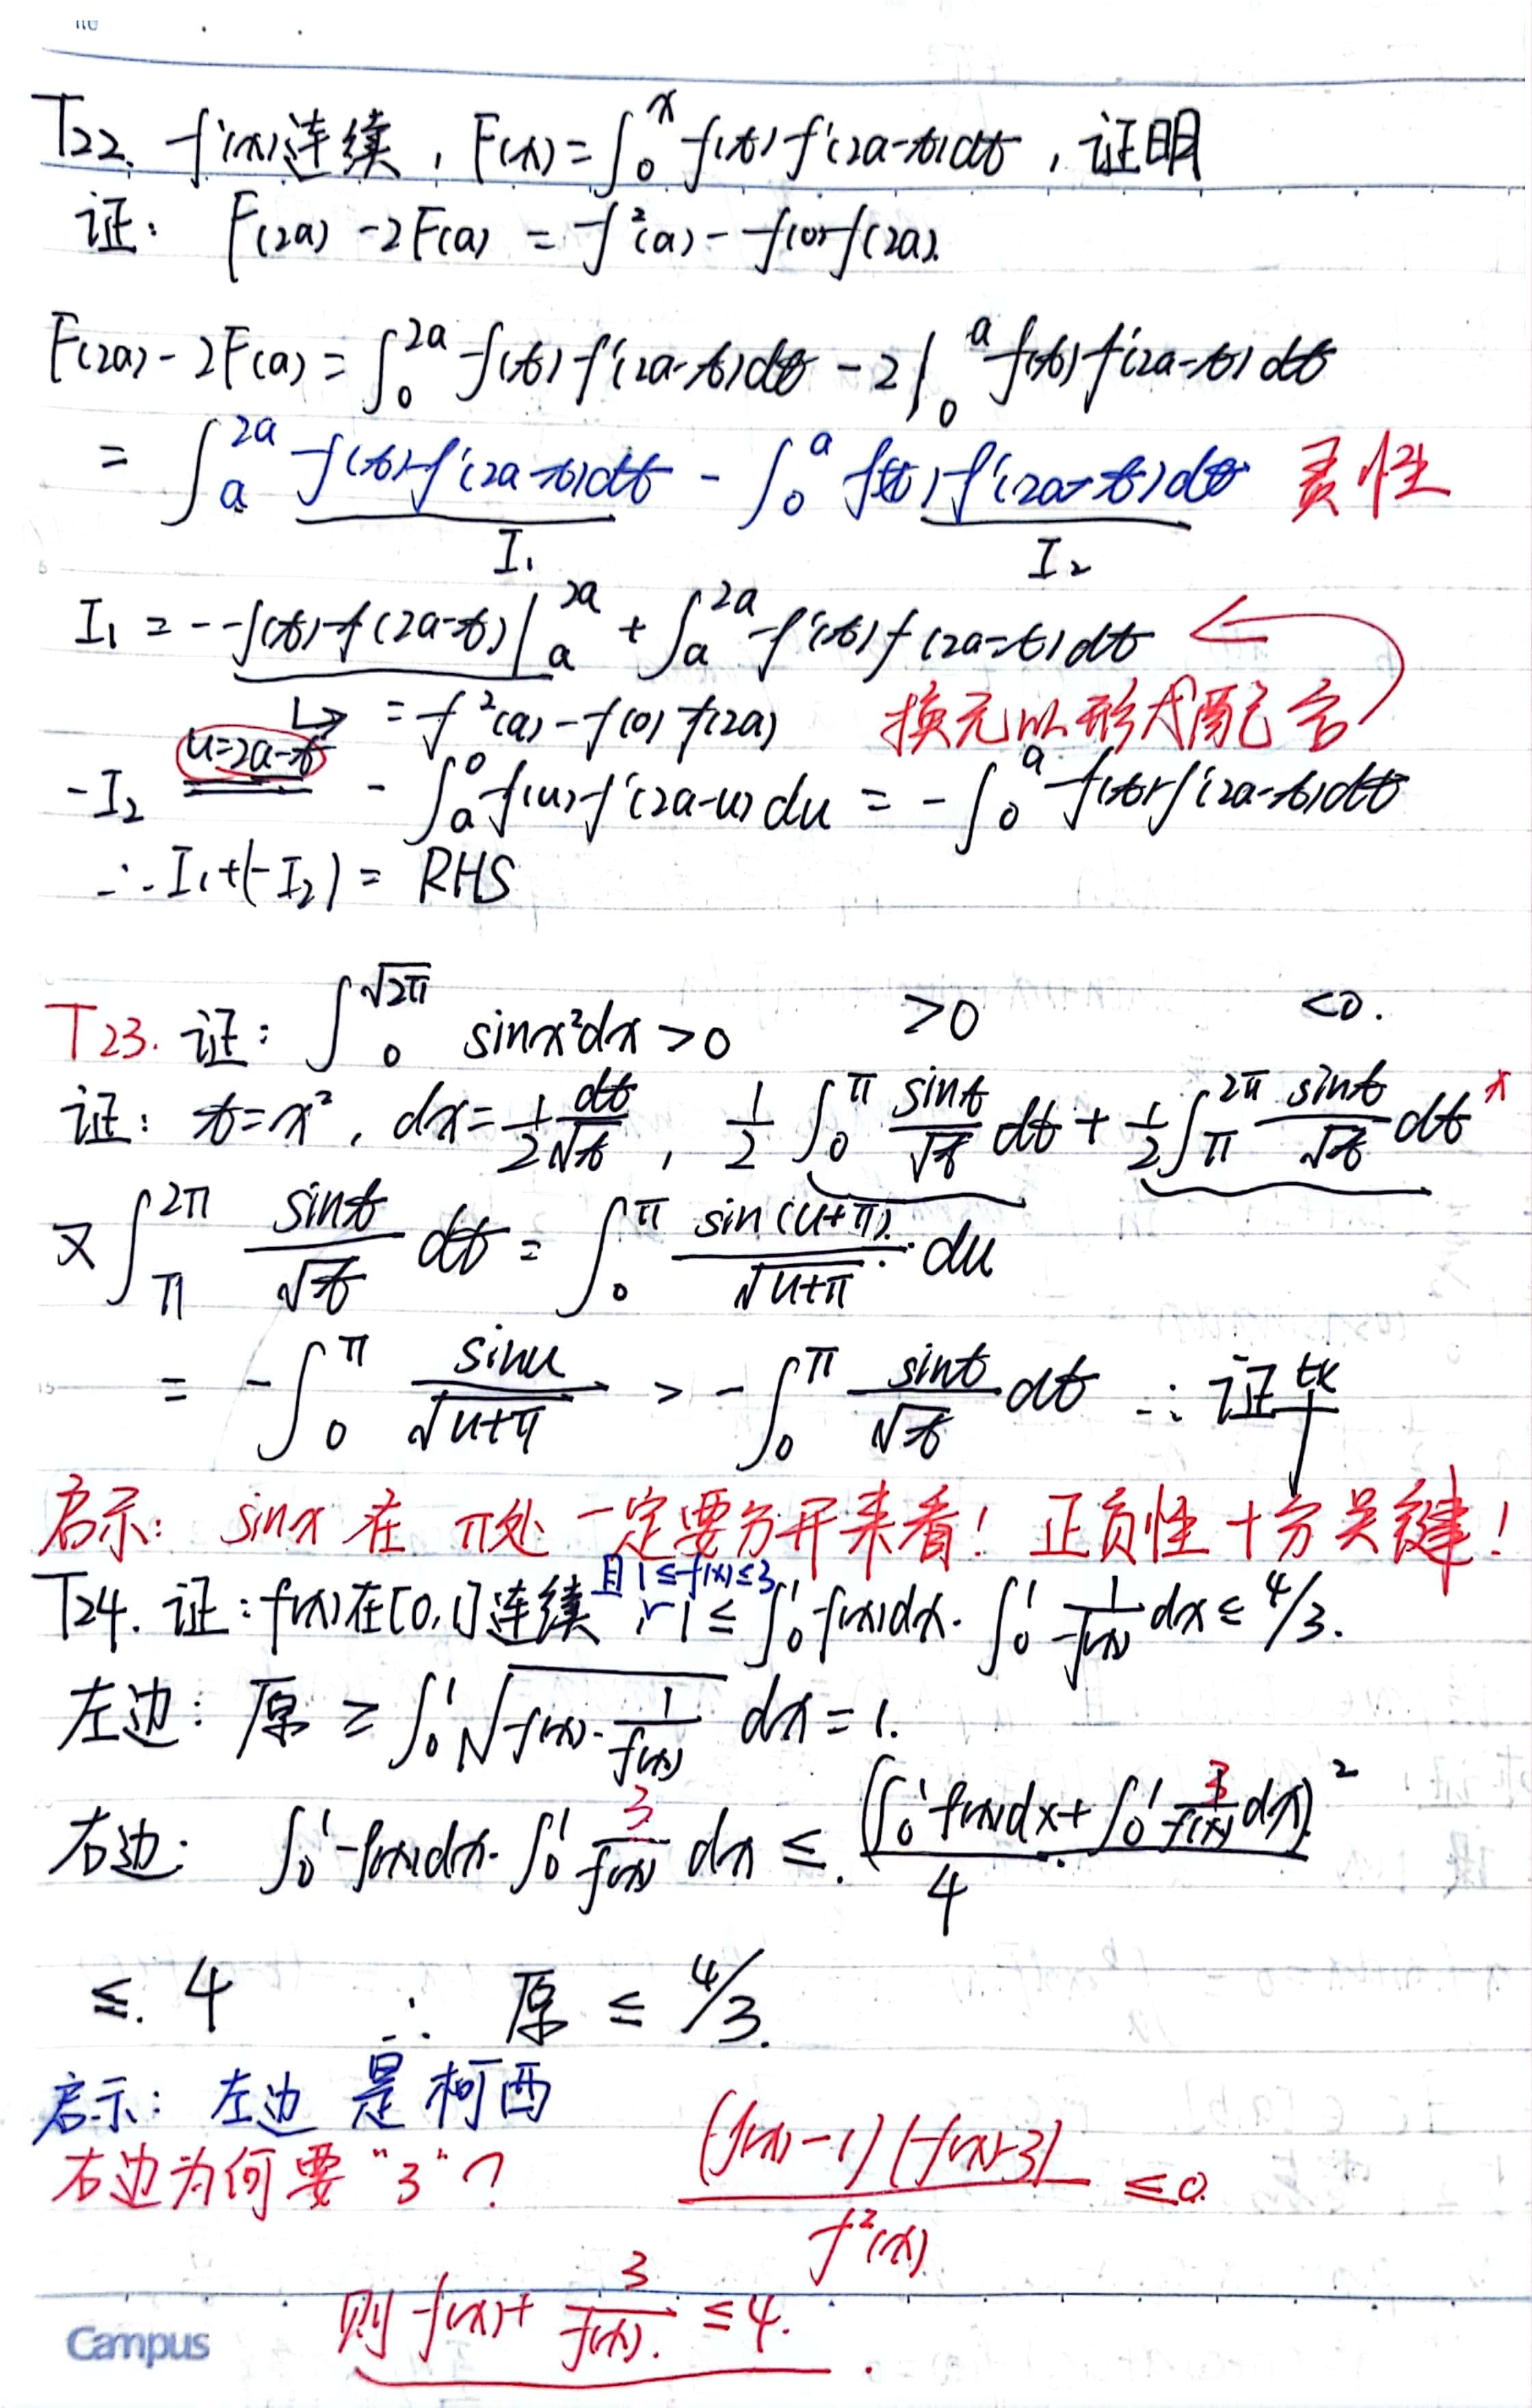 T22. f'(x)连续，F(x)=∫₀ˣ f(t)f'(2a-t)dt，证明
证：F(2a)-2F(a)=f²(a)-f(0)f(2a).
F(2a)-2F(a)=∫₀²ᵃ f(t)f'(2a-t)dt-2∫₀ᵃ f(t)f'(2a-t)dt
=∫ₐ²ᵃ f(t)f'(2a-t)dt-∫₀ᵃ f(t)f'(2a-t)dt 灵性
I₁ I₂
I₁=-f(t)f(2a-t)|ₐ²ᵃ+∫ₐ²ᵃ f'(t)f(2a-t)dt ←
↳ =f²(a)-f(0)f(2a) 换元以形式配合
-I₂ u=2a-t -∫ₐ⁰ f(u)f'(2a-u)du=-∫₀ᵃ f(t)f'(2a-t)dt
∴I₁+(-I₂)=RHS
T23. 证：∫₀^√2π sinx²dx>0 >0 <0.
证：t=x²，dx=½ dt/√t，½∫₀^π sint/√t dt+½∫_π^2π sint/√t dt *
又∫_π^2π sint/√t dt=∫₀^π sin(u+π)/√(u+π)·du
=-∫₀^π sinu/√(u+π) >-∫₀^π sint/√t dt ∴证毕
启示：sinx在π处一定要分开来看！正负性十分关键！
且1≤f(x)≤3
T24. 证：f(x)在[0,1]连续，1≤∫₀¹f(x)dx·∫₀¹ 1/f(x) dx≤4/3.
左边：原≥∫₀¹√(f(x)·1/f(x)) dx=1.
右边：∫₀¹f(x)dx·∫₀¹ 3/f(x) dx≤.(∫₀¹f(x)dx+∫₀¹ 3/f(x) dx)²/4
≤.4 ∴ 原≤4/3.
启示：左边是柯西
右边为何要"3"？ (f(x)-1)(f(x)-3)/f²(x) ≤0.
则f(x)+3/f(x).≤4.
Campus